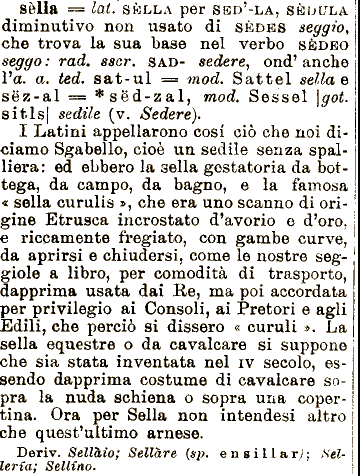 sèlla = lat. SÈLLA per SED'-LA, SÈDULA
diminutivo non usato di SÈDES seggio,
che trova la sua base nel verbo SÈDEO
seggo: rad. sscr. SAD- sedere, ond'anche
l'a. a. ted. sat-ul = mod. Sattel sella e
sëz-al = *sëd-zal, mod. Sessel |got.
sitls| sedile (v. Sedere).
I Latini appellarono cosí ciò che noi di-
ciamo Sgabello, cioè un sedile senza spal-
liera: ed ebbero la sella gestatoria da bot-
tega, da campo, da bagno, e la famosa
« sella curulis », che era uno scanno di ori-
gine Etrusca incrostato d'avorio e d'oro,
e riccamente fregiato, con gambe curve,
da aprirsi e chiudersi, come le nostre seg-
giole a libro, per comodità di trasporto,
dapprima usata dai Re, ma poi accordata
per privilegio ai Consoli, ai Pretori e agli
Edili, che perciò si dissero « curuli ». La
sella equestre o da cavalcare si suppone
che sia stata inventata nel IV secolo, es-
sendo dapprima costume di cavalcare so-
pra la nuda schiena o sopra una coper-
tina. Ora per Sella non intendesi altro
che quest'ultimo arnese.
Deriv. Sellàio; Sellàre (sp. ensillar); Sel-
lería; Sellíno.